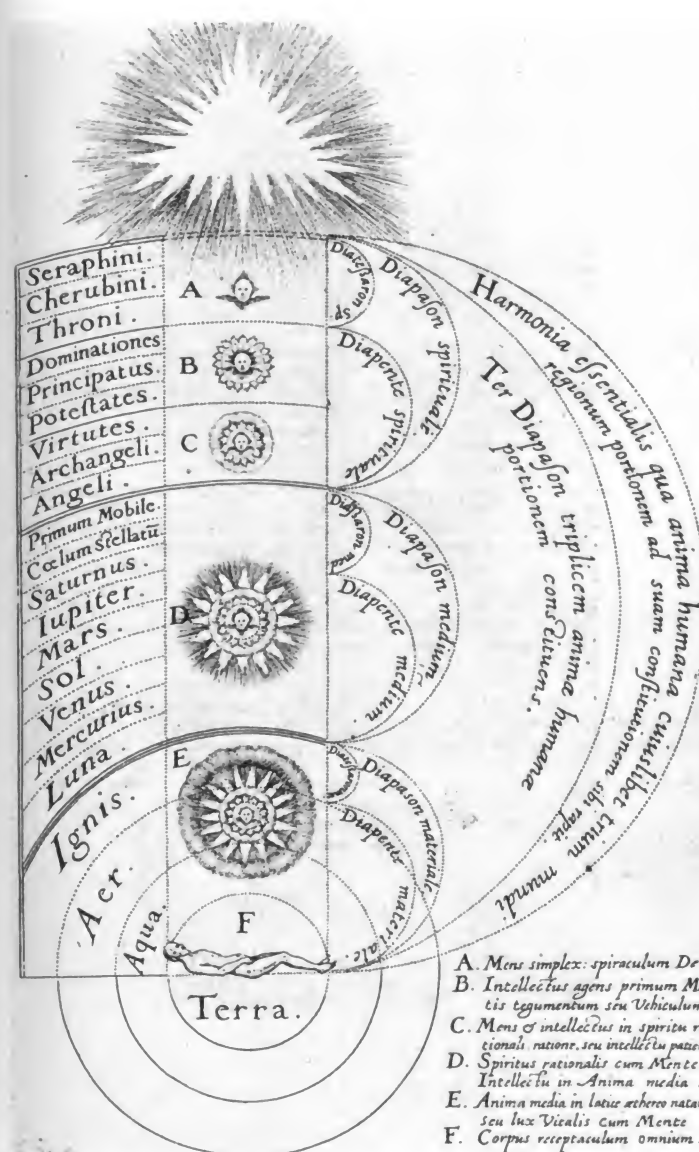 Seraphini.
Cherubini.
Throni.
Dominationes
Principatus.
Poteſtates.
Virtutes.
Archangeli.
Angeli.
Primum Mobile.
Cœlum Stellatū
Saturnus.
Iupiter.
Mars.
Sol.
Venus.
Mercurius.
Luna.
Ignis.
Aer.
Aqua.
Terra.
A
B
C
D.
E
F
Diateßaron sp
Diapaſon spirituale
Diapente spirituale
med
Diapaſon medium
Diapente medium
Diapason materiale
Diapente materiale.
Ter Diapaſon triplicem animæ humanæ
portionem conſtituens.
Harmonia eſſentialis qua anima humana cuiuslibet trium
regionum portionem ad suam conſtitutionem sibi rapit
mundi
A. Mens simplex: spiraculum De
B. Intellectus agens primum M
tis tegumentum seu Vehiculum
C. Mens & intellectus in spiritu r
tionali. ratione, seu intellectu patie
D. Spiritus rationalis cum Mente
Intellectu in Anima media
E. Anima media in latice æthereo nata
seu lux Vitalis cum Mente
F. Corpus receptaculum omnium